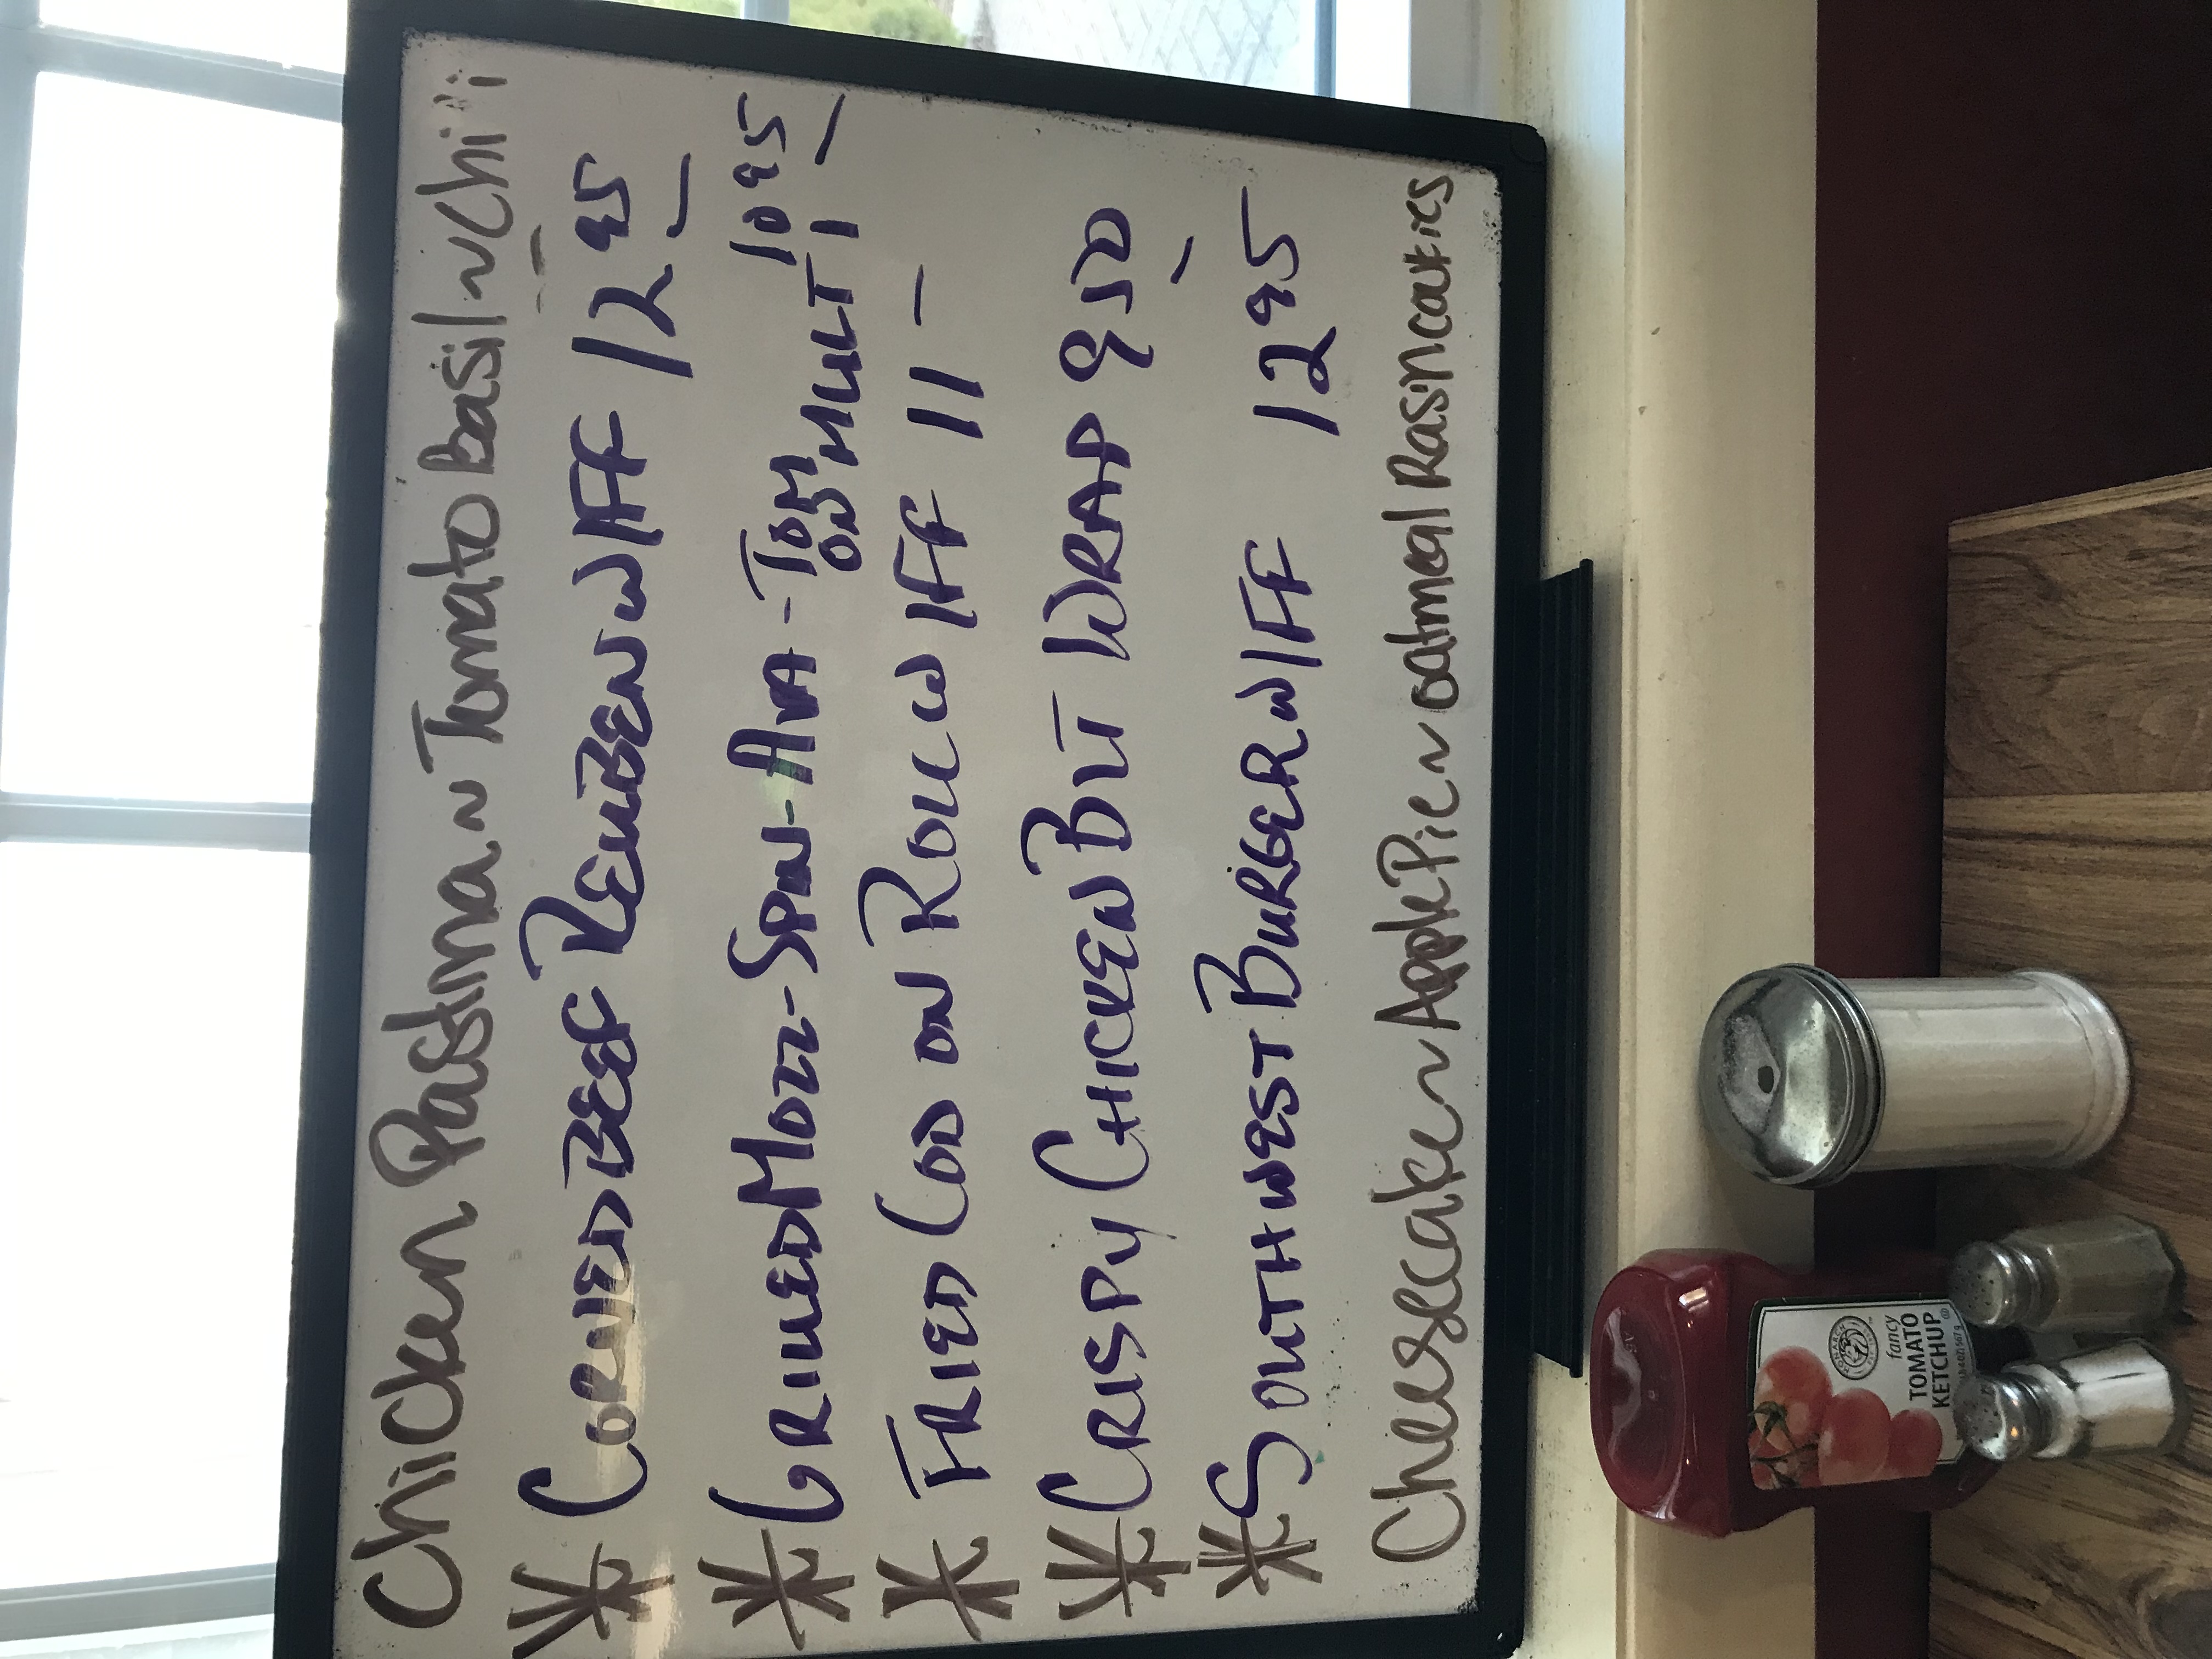 Chicken Pastina ~ Tomato Basil ~ Chili
* CORNED BEEF REUBEN W/FF 12 95
* GRILLED MOZZ - SPIN - AVA - TOM 10 95
ON MULTI
* FRIED COD ON ROLL W/FF 11 -
* CRISPY CHICKEN BLT WRAP 9 50
* SOUTHWEST BURGER W/FF 12 95
Cheesecake ~ Apple Pie ~ oatmeal Rasin cookies
MONARCH
fancy
TOMATO
KETCHUP